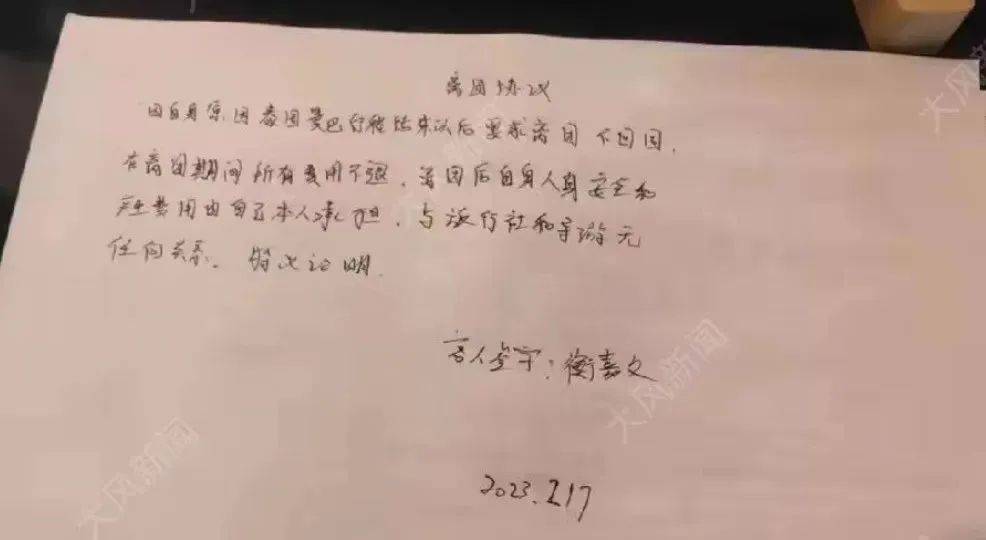 离团协议
因自身原因泰国曼巴行程结束以后要求离团 不回国.
在离团期间所有费用不退. 离团后自身人身安全和
产生费用由自己本人承担. 与旅行社和导游无
任何关系. 特此证明.
客人签字: 衡嘉文
2023.2.17
大风新闻
大风新闻
大风新闻
大风新闻